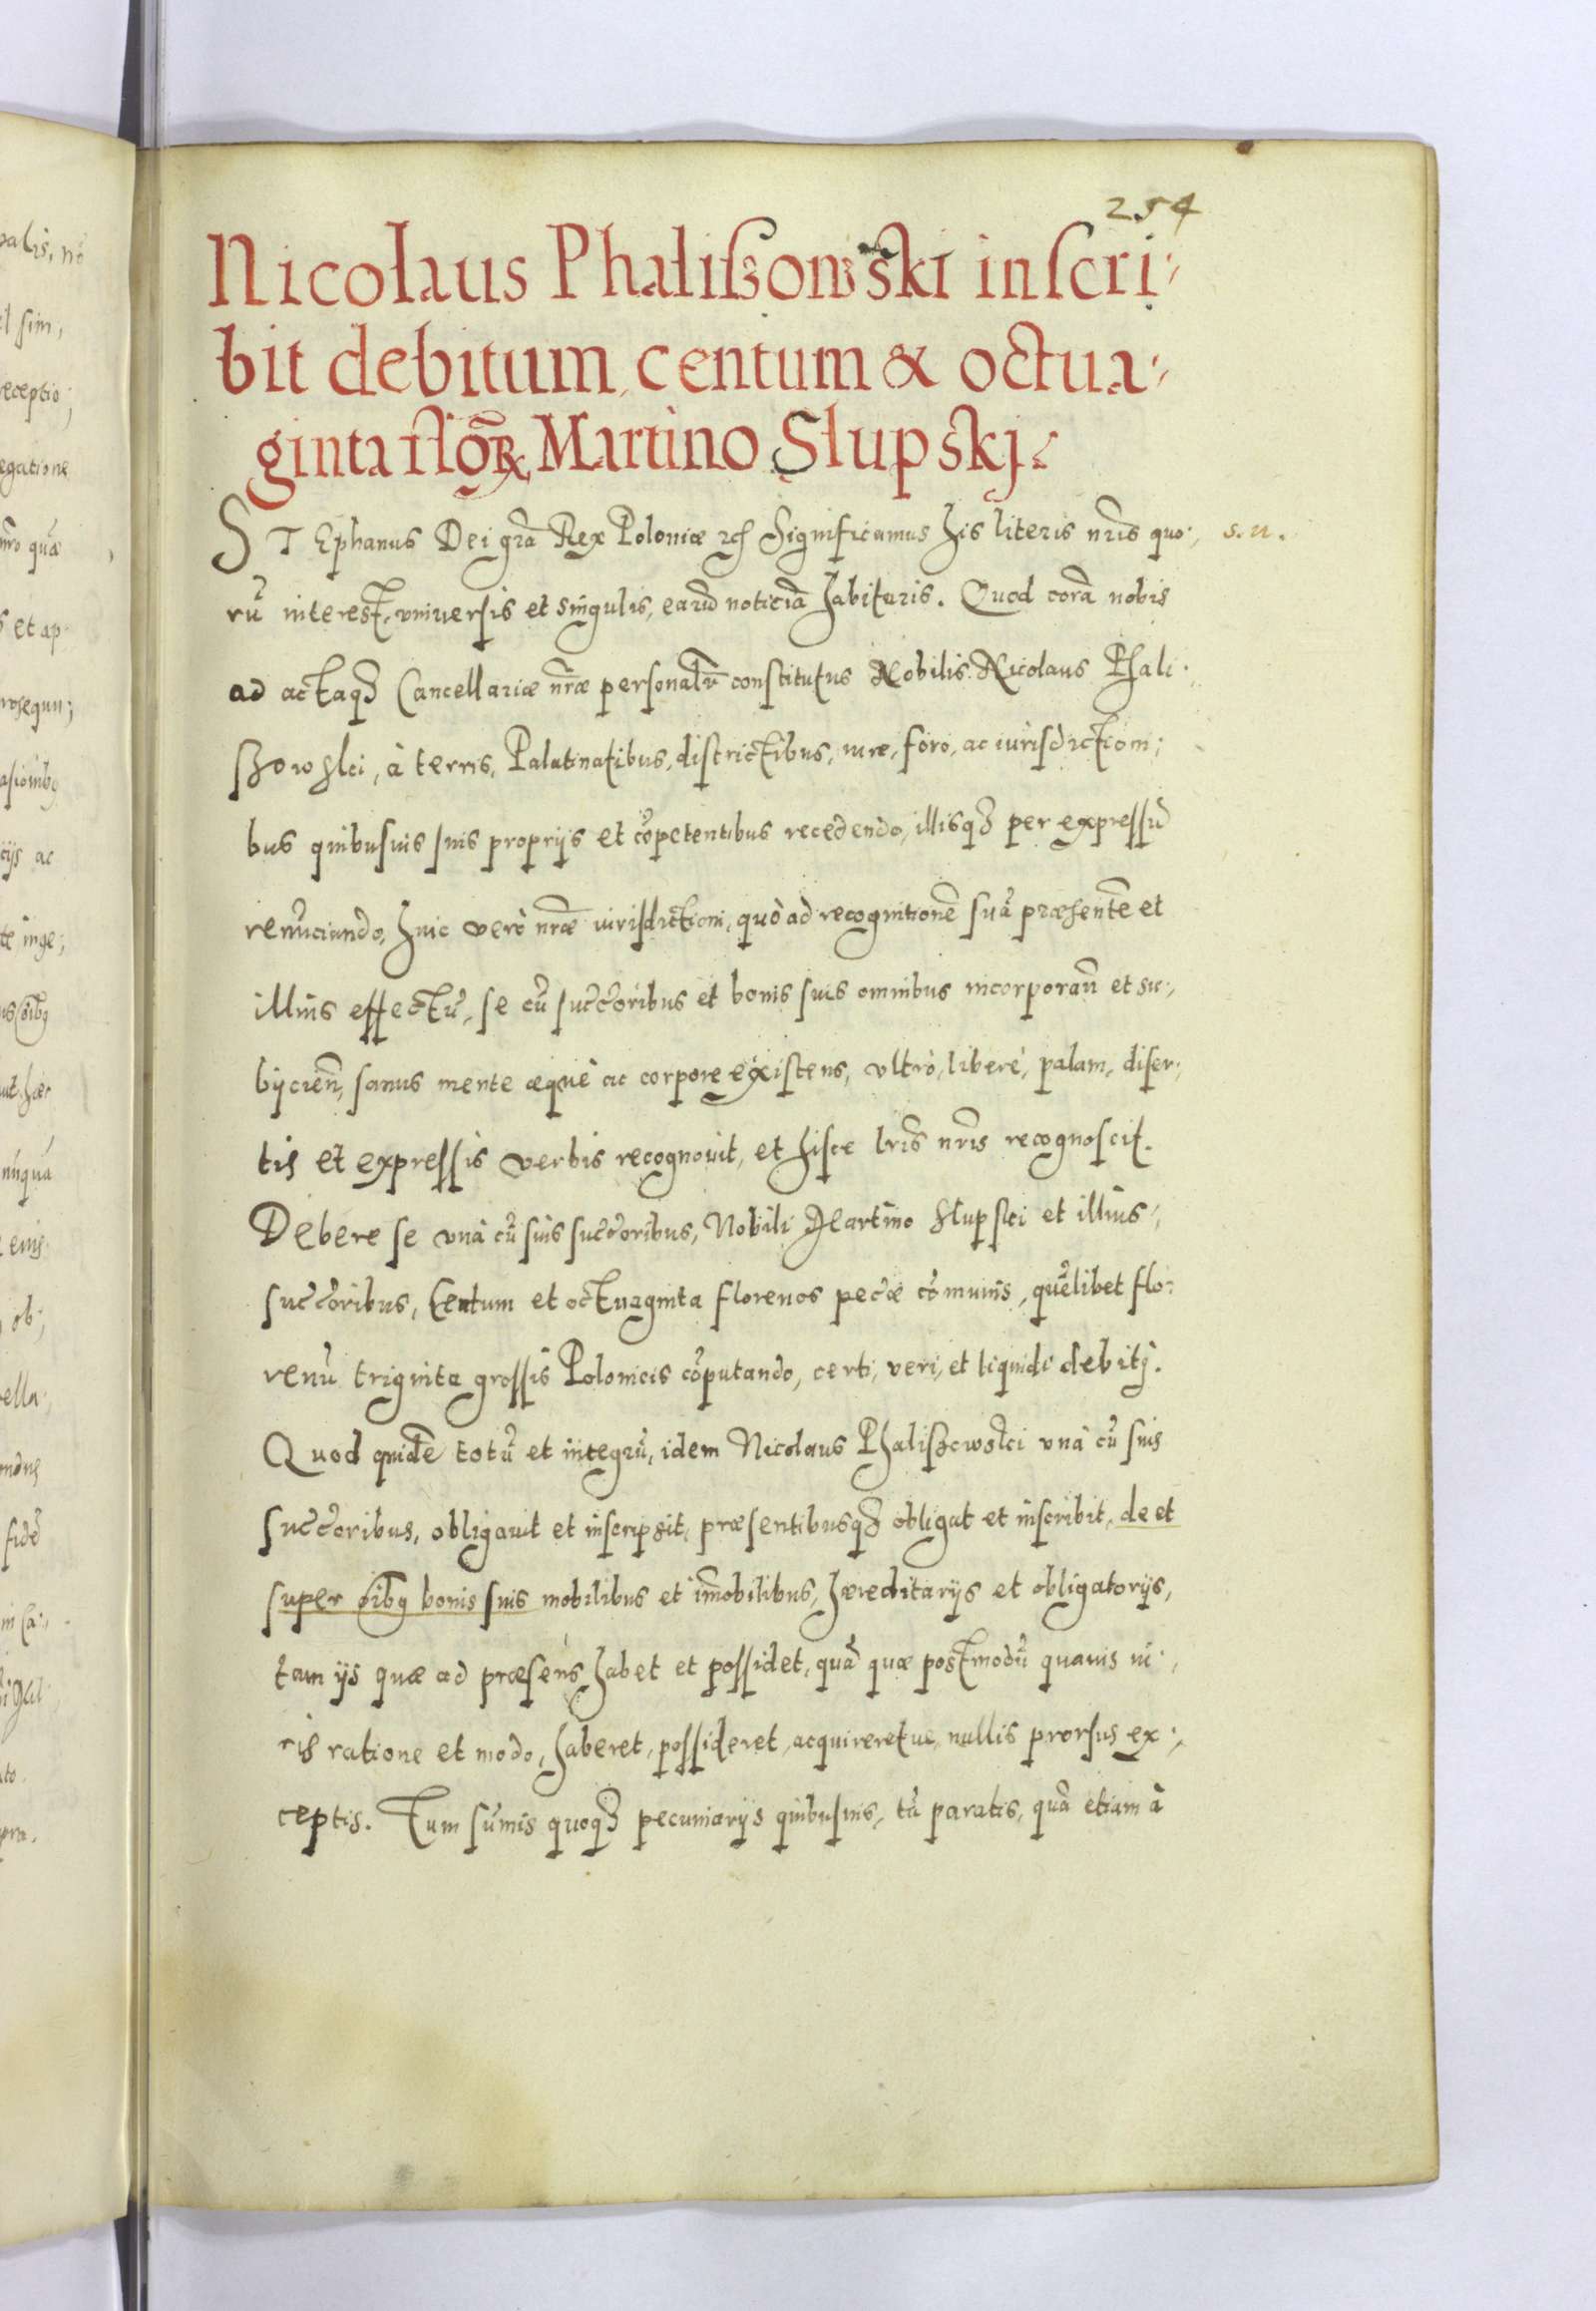 254
Nicolaus Phalißowski inscri
bit debitum centum & octua
ginta flor̃ Martino Slupskj
STEphanus Dei grã Rex Poloniæ etc Significamus his literis nr̃is quo
rũ interest, vniuersis et singulis, earũ noticiã habituris. Quod corã nobis
s. n.
ad actaq3 Cancellariæ nr̃æ personalr̃ constitutus Nobilis Nicolaus Phali
szowski, à terris, Palatinatibus, districtibus, iure, foro, ac iurisdiction;
bus quibusuis suis proprijs et cõpetentibus recedendo, illisq3 per expressũ
renũciando, huic verò nr̃æ iurisdictioni, quò ad recognitionẽ suã præsentẽ et
illius effectũ, se cũ succ̃oribus et bonis suis omnibus incorporañ et su
bijcieñ, sanus mente æquè ac corpore existens, vltrò, liberè, palam, diser
tis et expressis verbis recognouit, et hisce lr̃is nr̃is recognoscit.
Debere se vnà cũ suis succ̃oribus, Nobili Martino Slupski et illius
succ̃oribus, Centum et octuaginta florenos pec̃æ cõmunis, quẽlibet flo
renũ triginta grossis Polonicis cõputando, certi, veri, et liquidi debitj.
Quod quidẽ totũ et integrũ, idem Nicolaus Phaliszowski vnà cũ suis
succ̃oribus, obligauit et inscripsit, præsentibusq3 obligat et inscribit, de et
super õibq bonis suis mobilibus et im̃obilibus, hæreditarijs et obligatorijs,
tam ijs quæ ad præsens habet et possidet, quã quæ postmodũ quauis iu
ris ratione et modo, haberet, possideret, acquireretue, nullis prorsus ex
ceptis. Tum sũmis quoq3 pecuniarijs quibusuis, tã paratis, quã etiam à